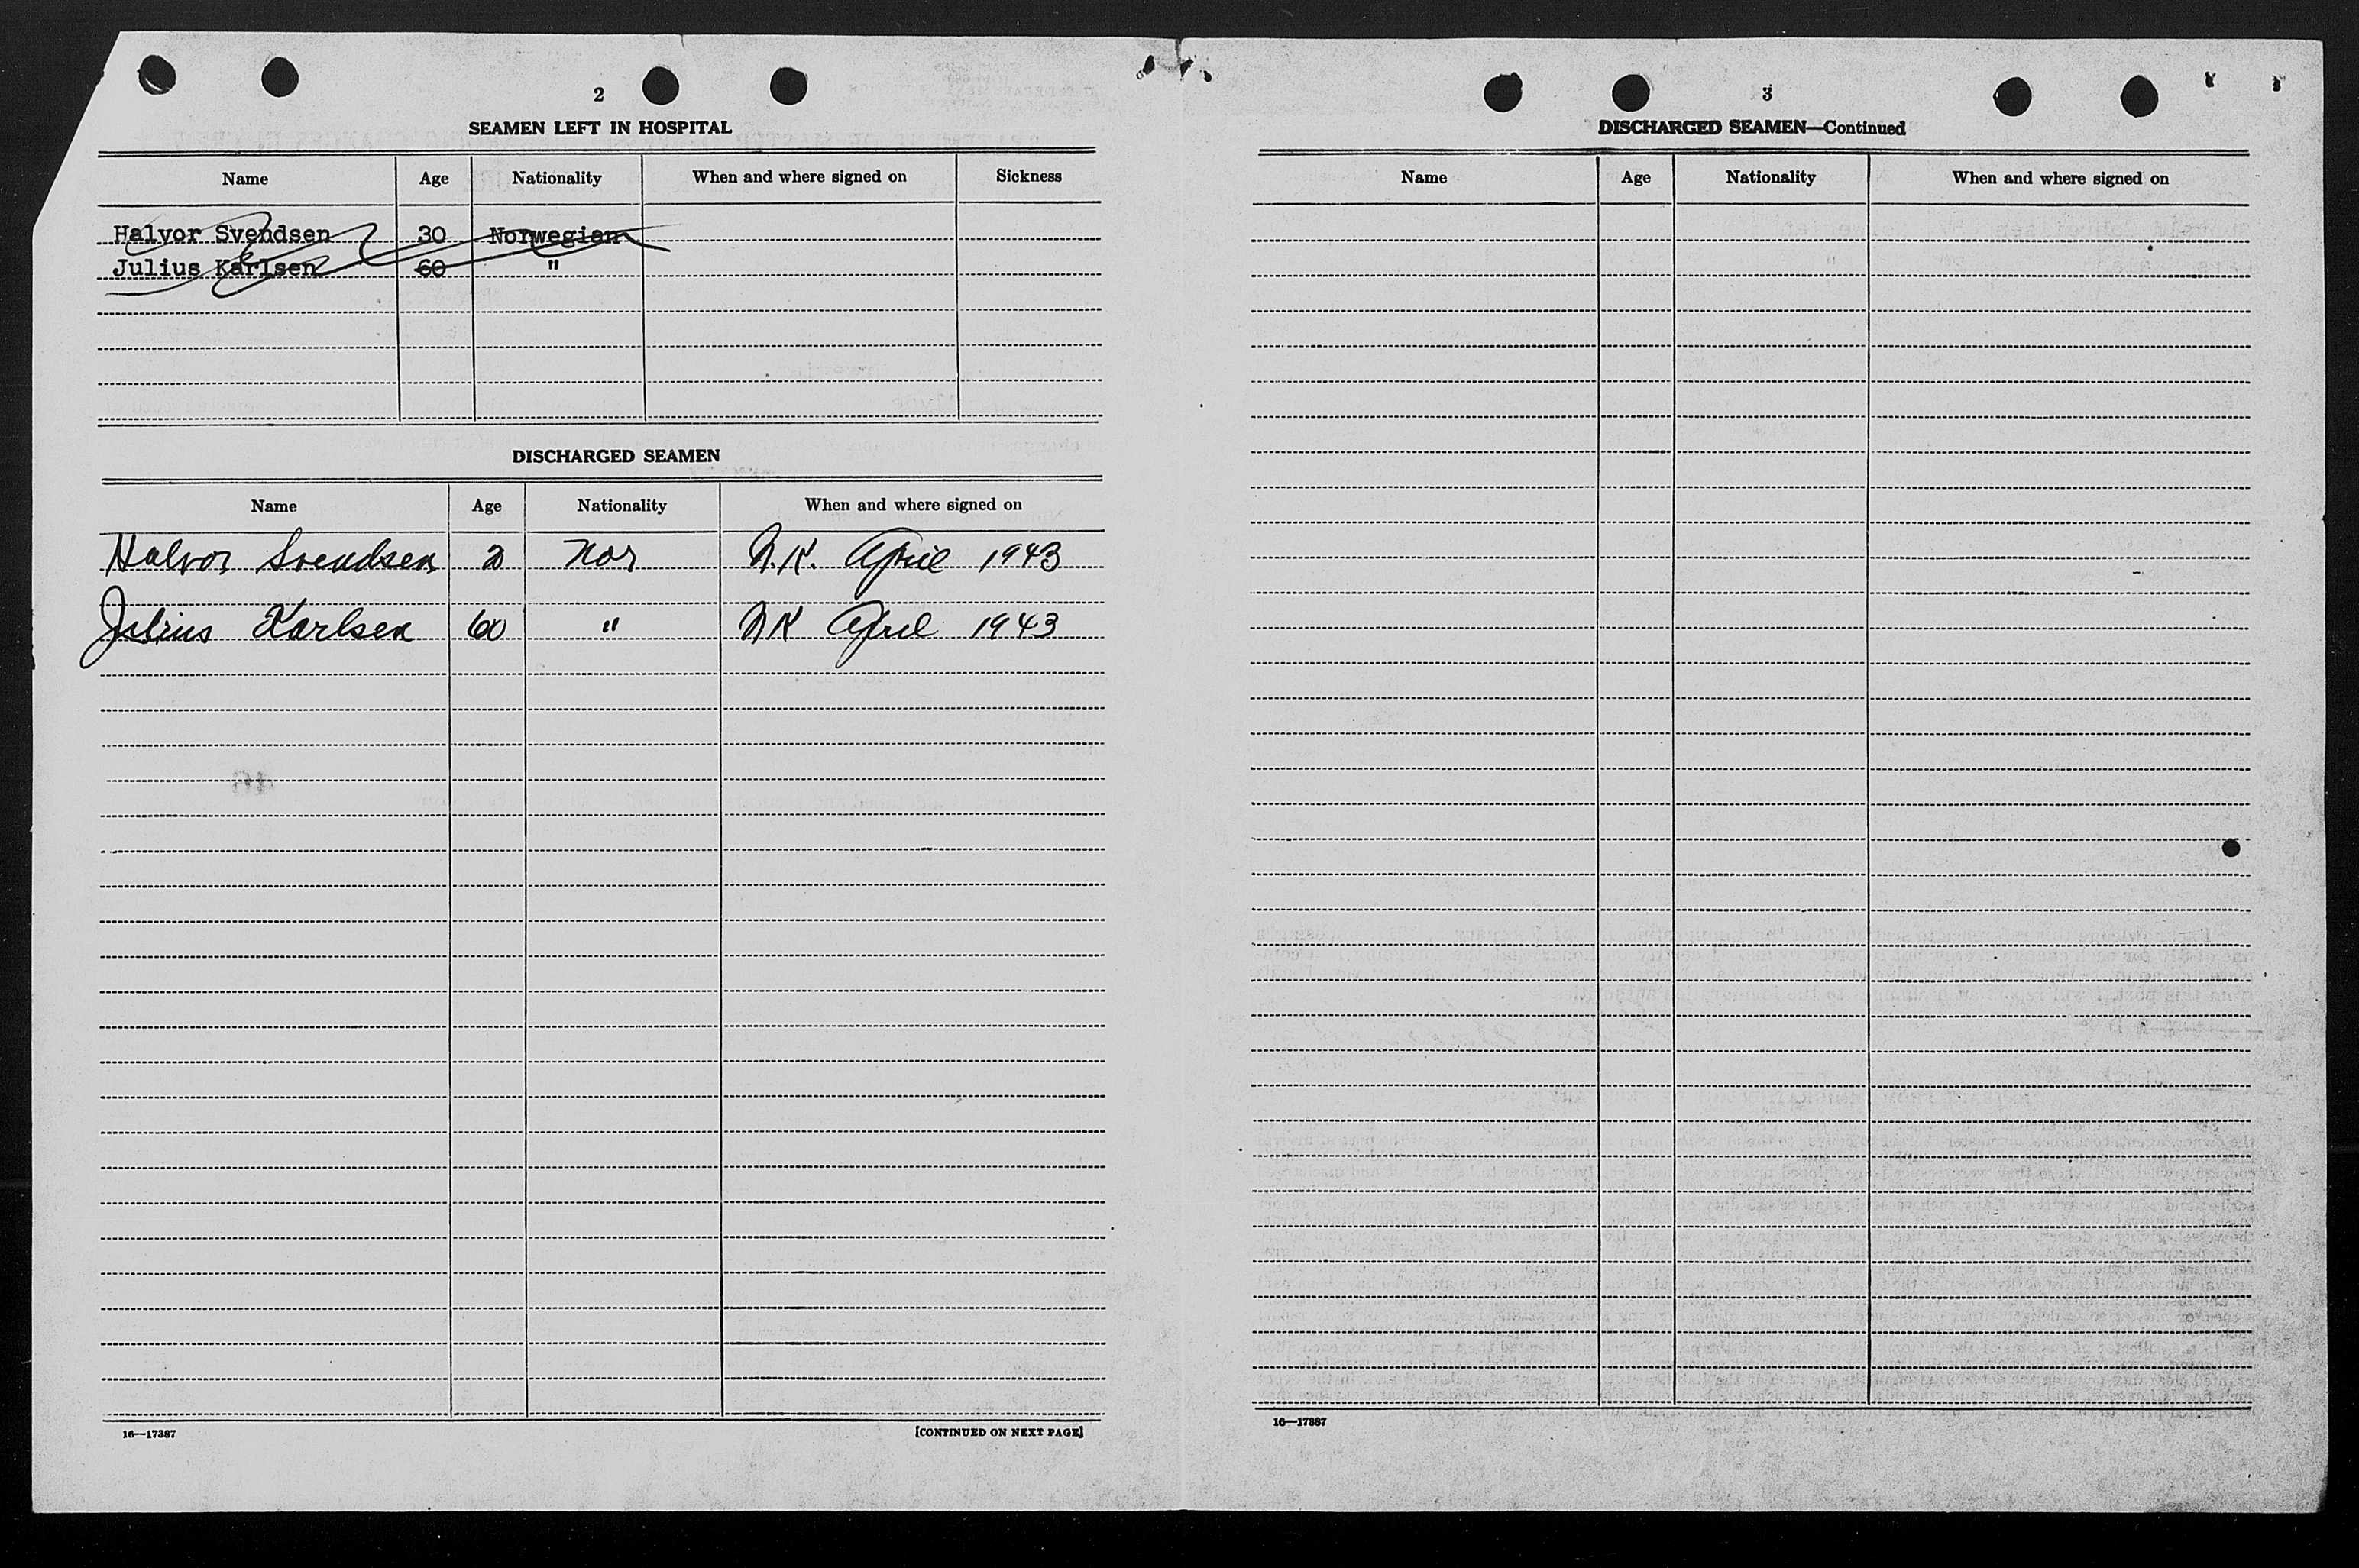 2
SEAMEN LEFT IN HOSPITAL
Name Age Nationality When and where signed on Sickness
Halvor Svendsen 30 Norwegian
Julius Karlsen 60 "
DISCHARGED SEAMEN
Name Age Nationality When and where signed on
Halvor Svendsen Nor April 1943
Julius Karlsen 60 " April 1943
16—17387
[CONTINUED ON NEXT PAGE]
3
DISCHARGED SEAMEN—Continued
Name Age Nationality When and where signed on
16—17387